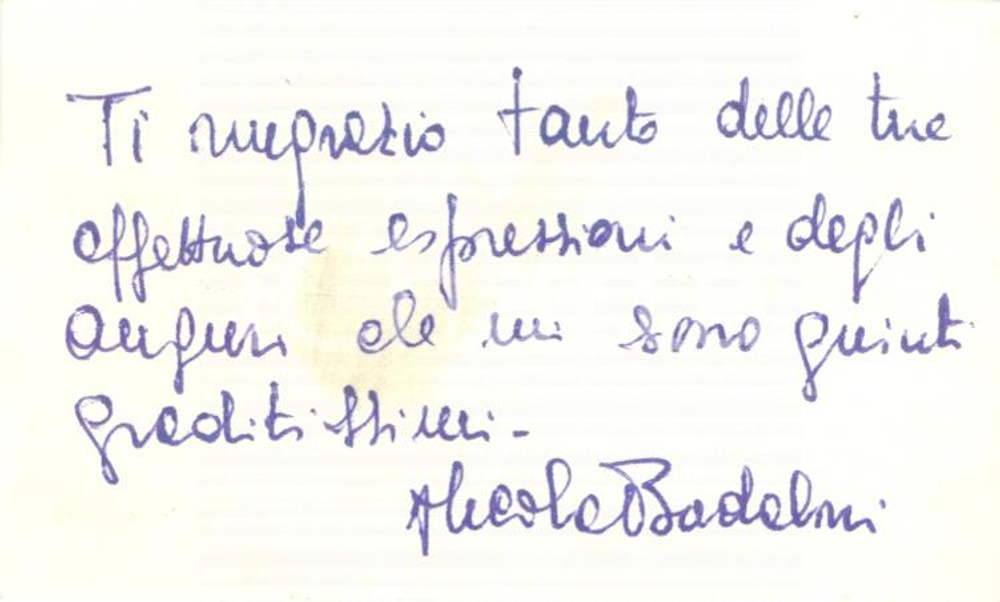 Ti ringrazio tanto delle tue
affettuose espressioni e degli
auguri che mi sono giunti
graditissimi -
Nicola Badaloni